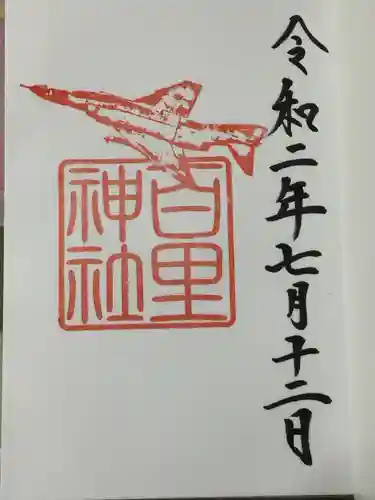 令和二年七月十二日
百里
神社